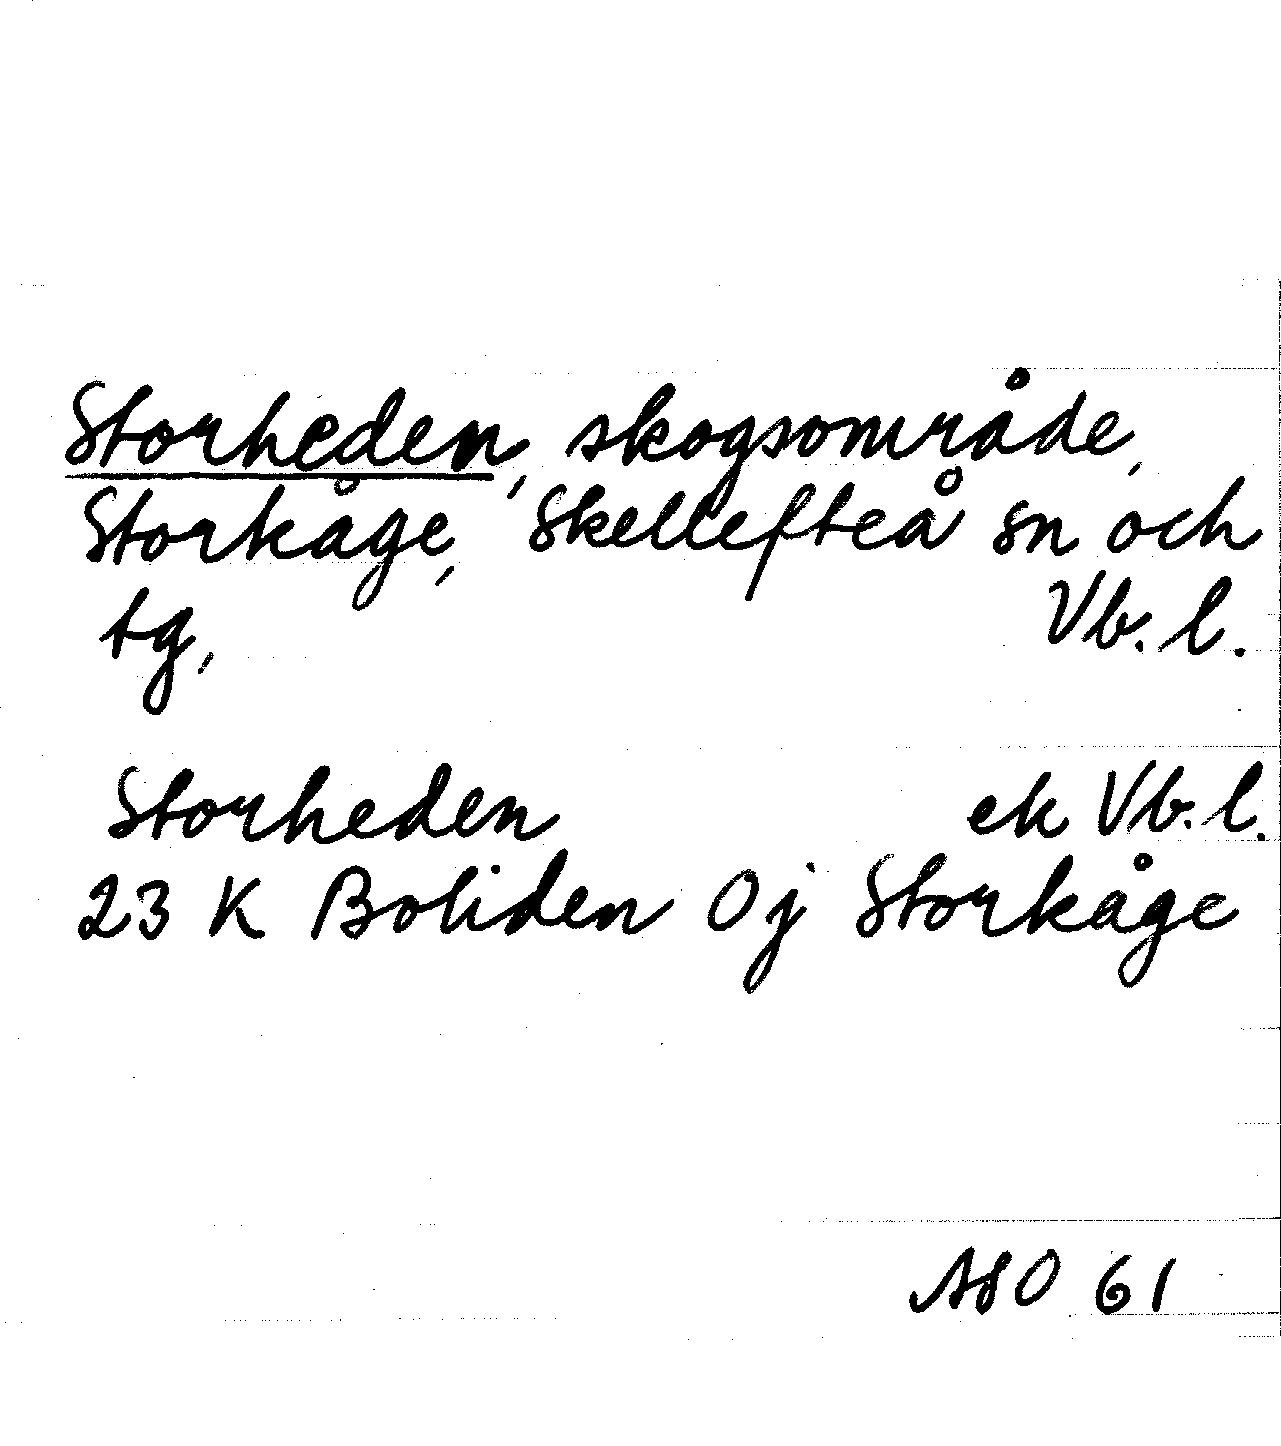 Storheden, skogsområde,
Storkåge, Skellefteå sn och
tg, Vb. l.
Storheden ek Vb. l.
23 K Boliden Oj Storkåge
ASO 61